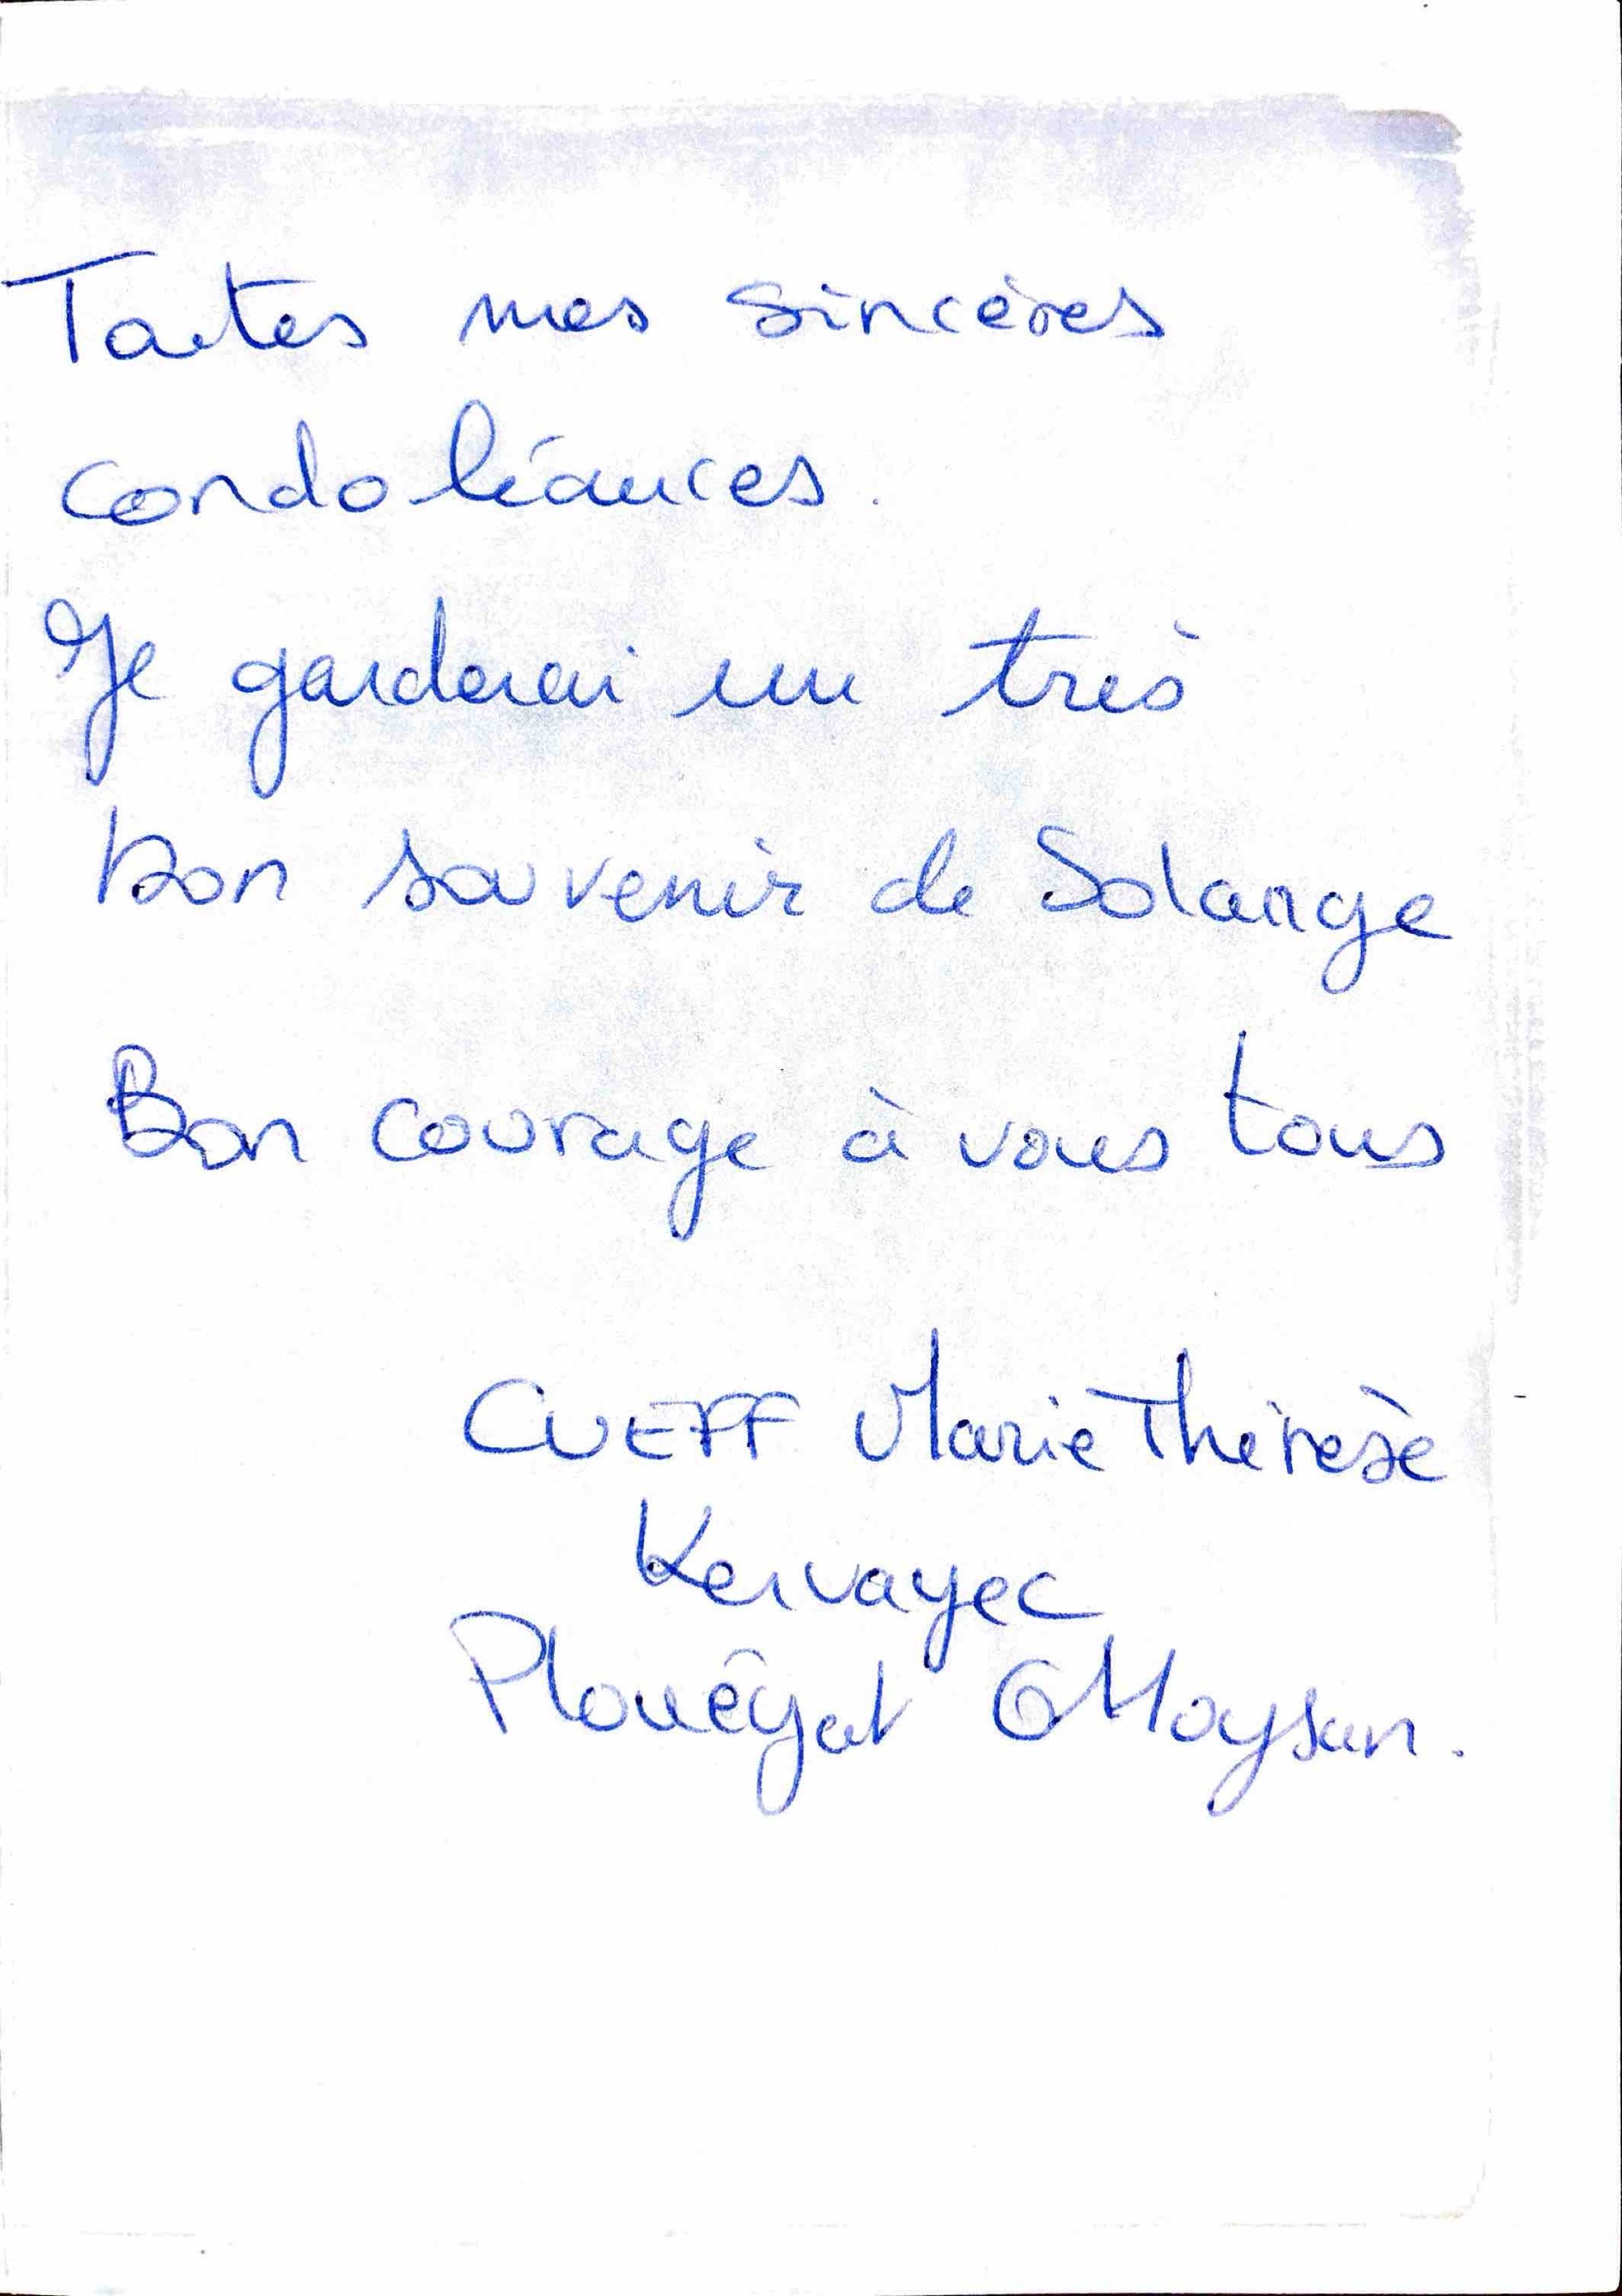 Toutes mes sincères
condoléances.
Je garderai un très
bon souvenir de Solange
Bon courage à vous tous
CUEFF Marie Thérèse
Kervayec
Plouégat Moysan.